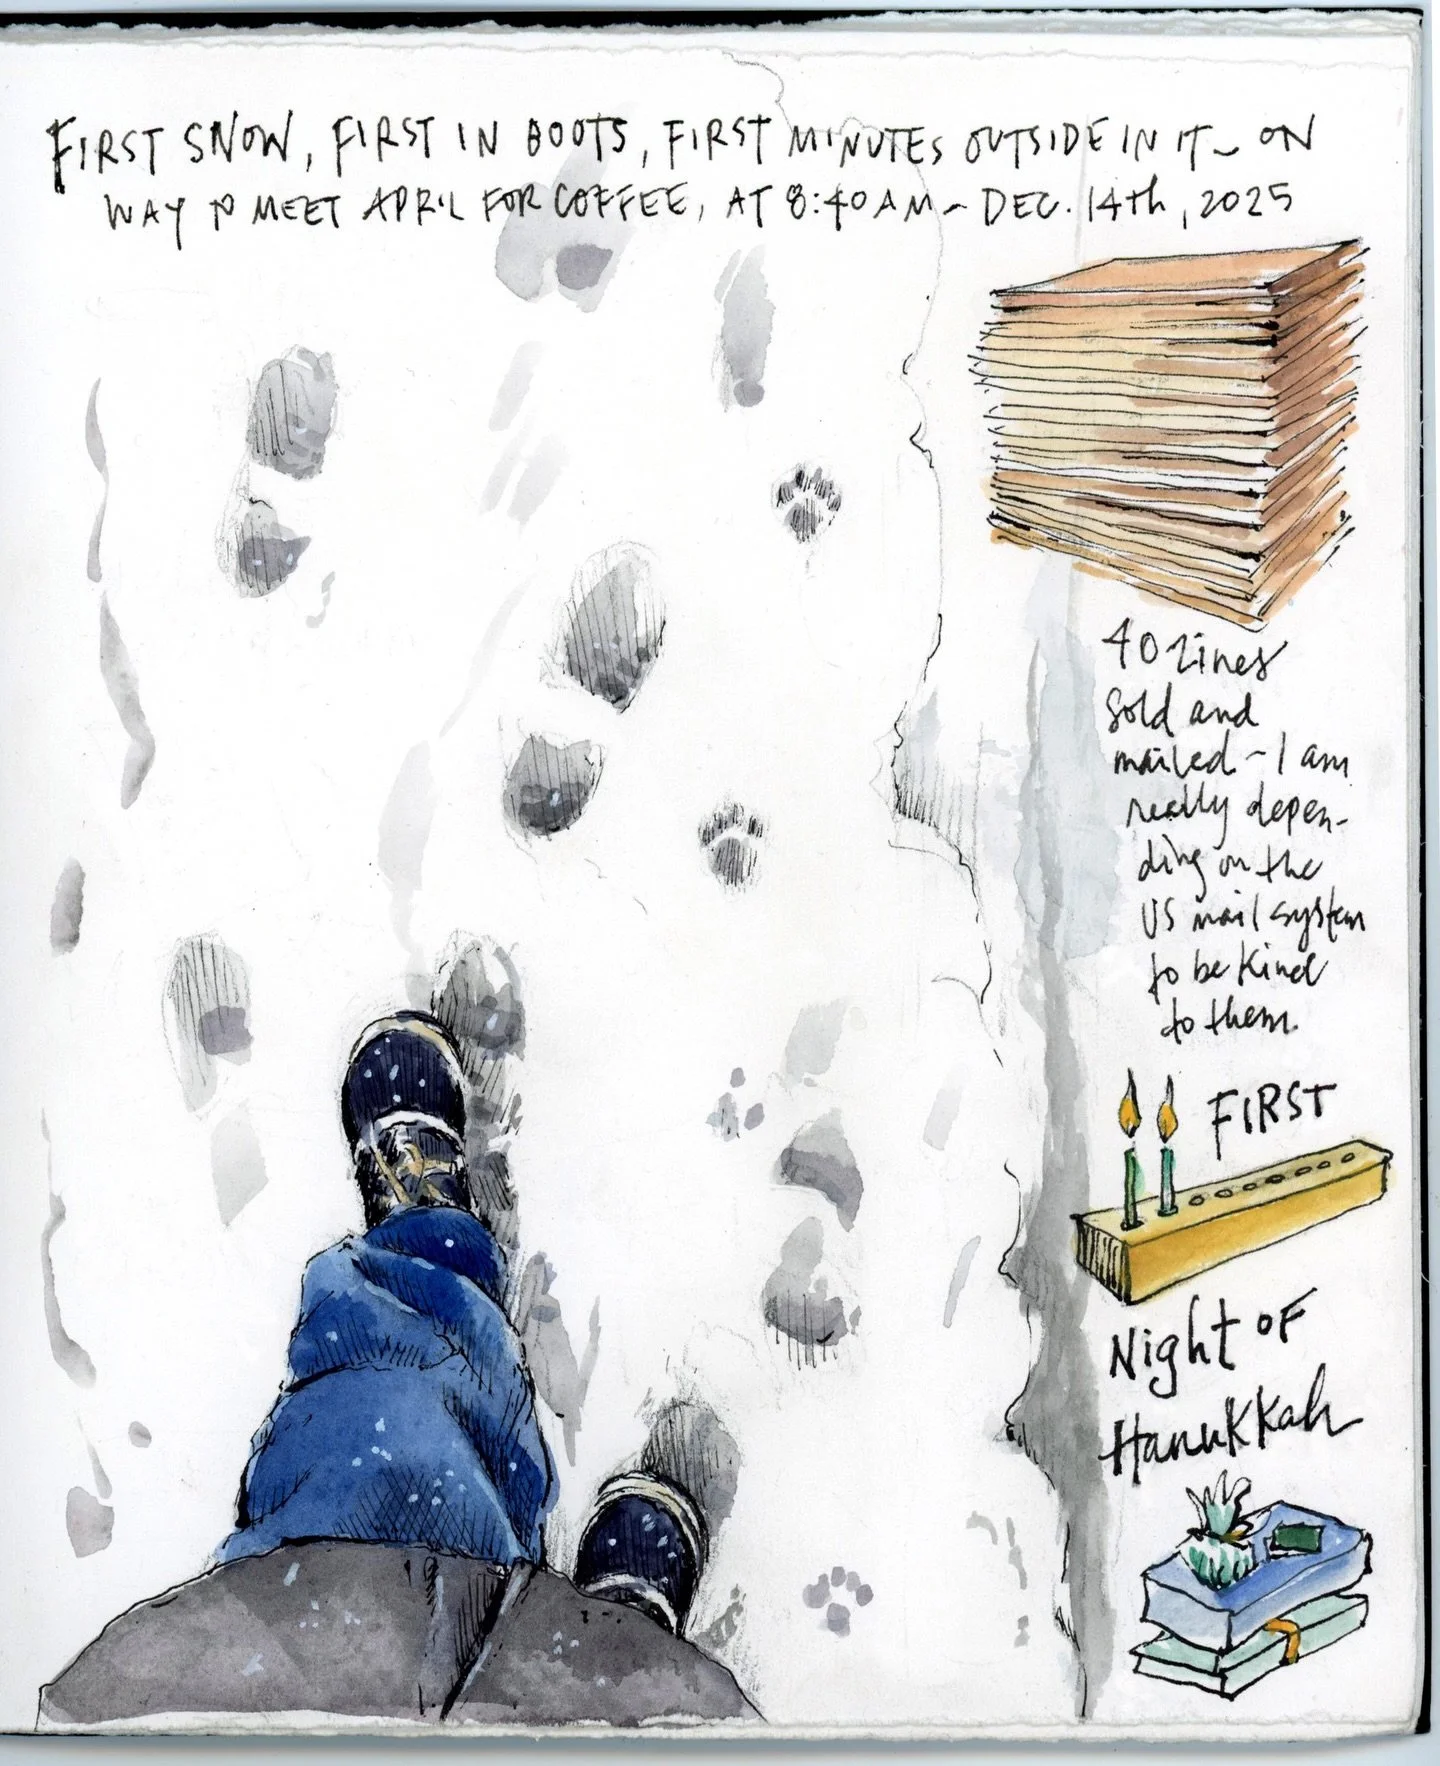 FIRST SNOW, FIRST IN BOOTS, FIRST MINUTES OUTSIDE IN IT ~ ON
WAY TO MEET APRIL FOR COFFEE, AT 8:40 AM ~ DEC. 14th, 2025
40 zines
sold and
mailed ~ I am
really depen-
ding on the
US mail system
to be kind
to them.
FIRST
Night OF
HanuKKah